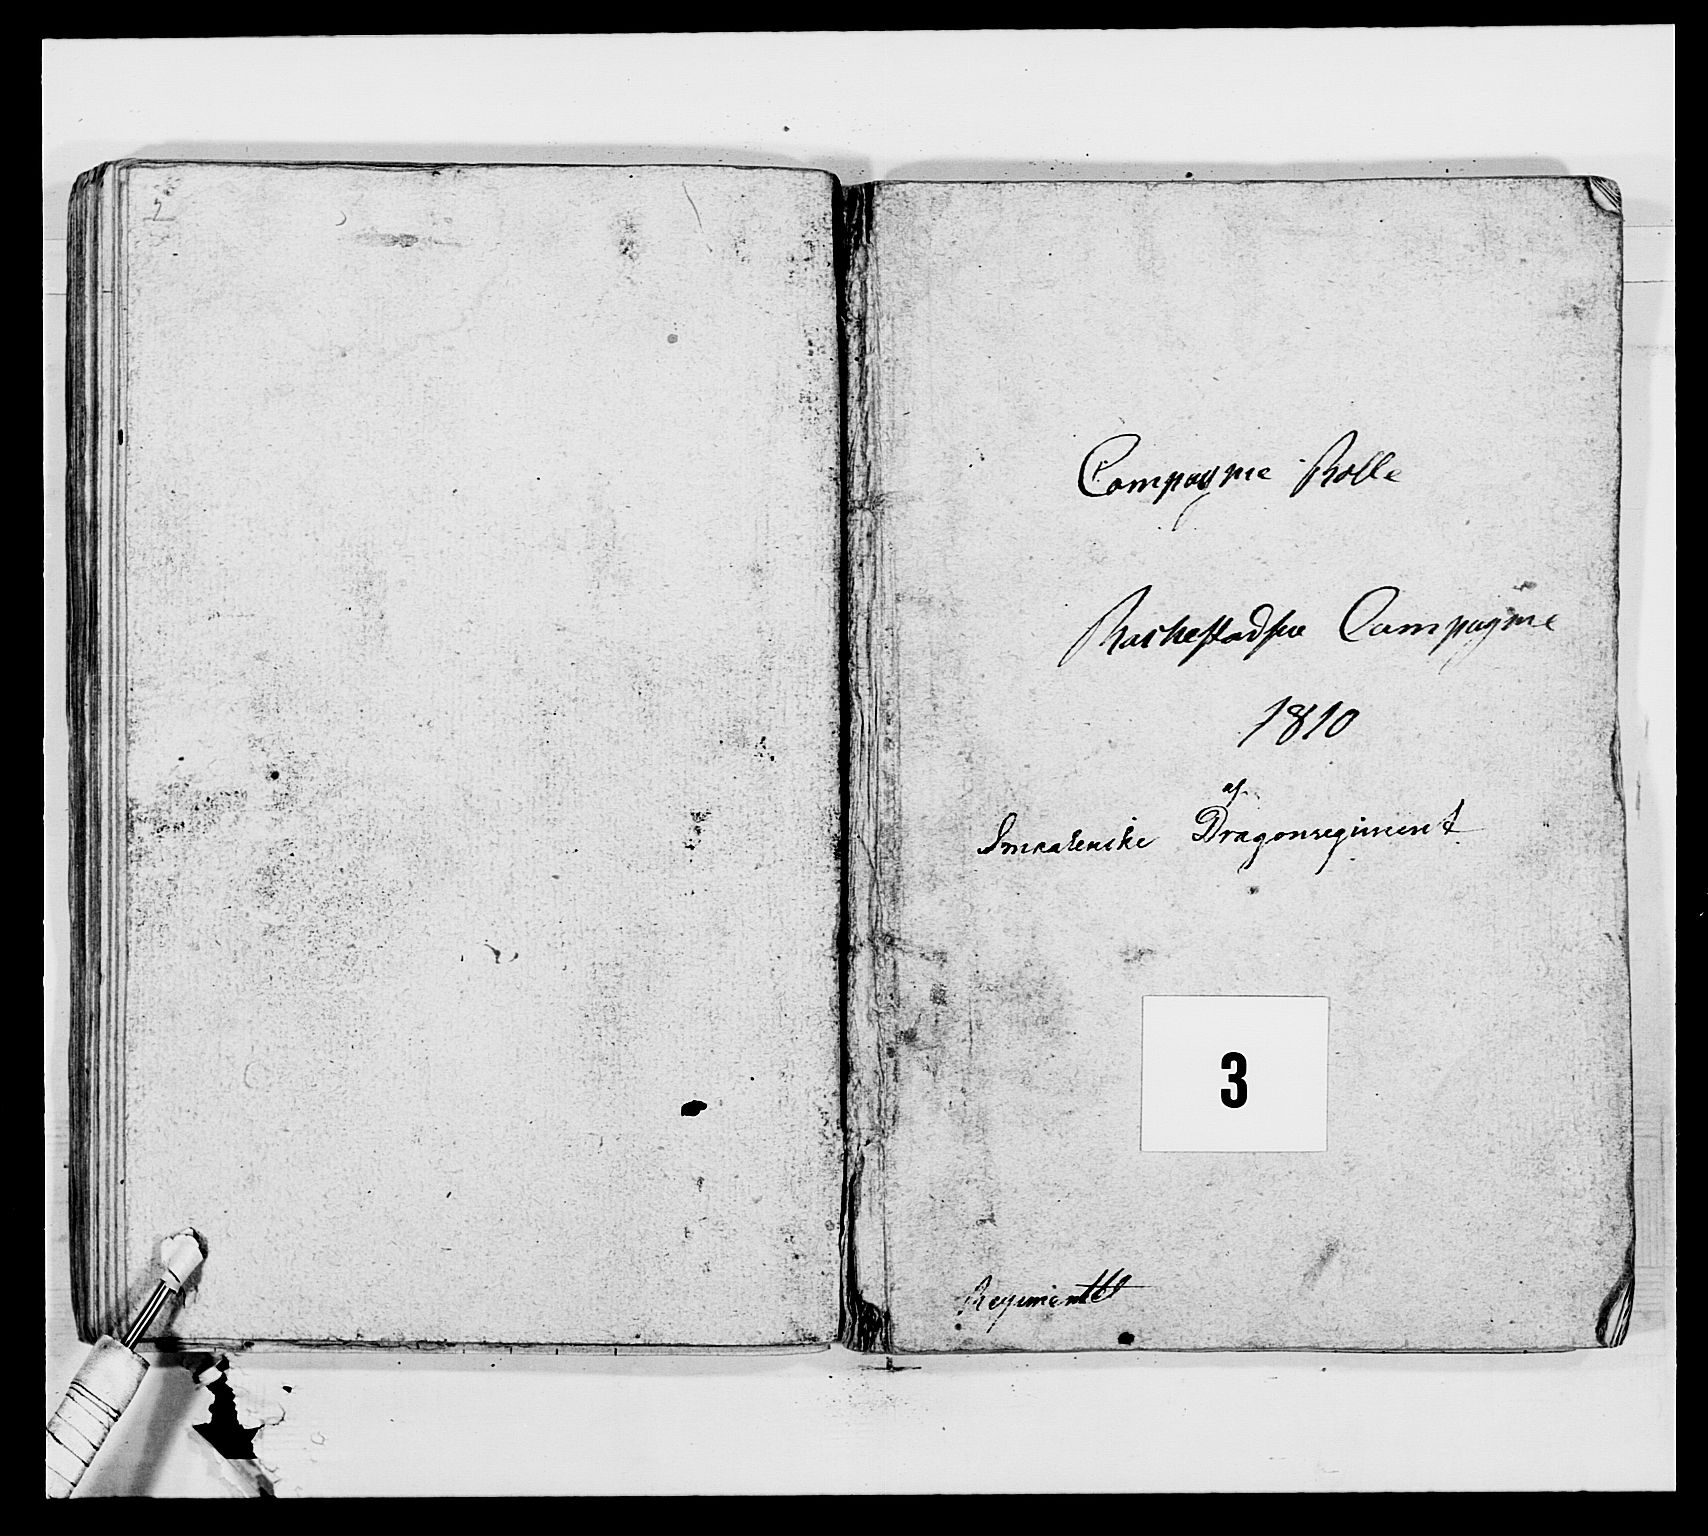 Compagnie Rolle
Rackestadske Compagnie
1810
af
Smaalenske Dragonregiment
3
Regimentet